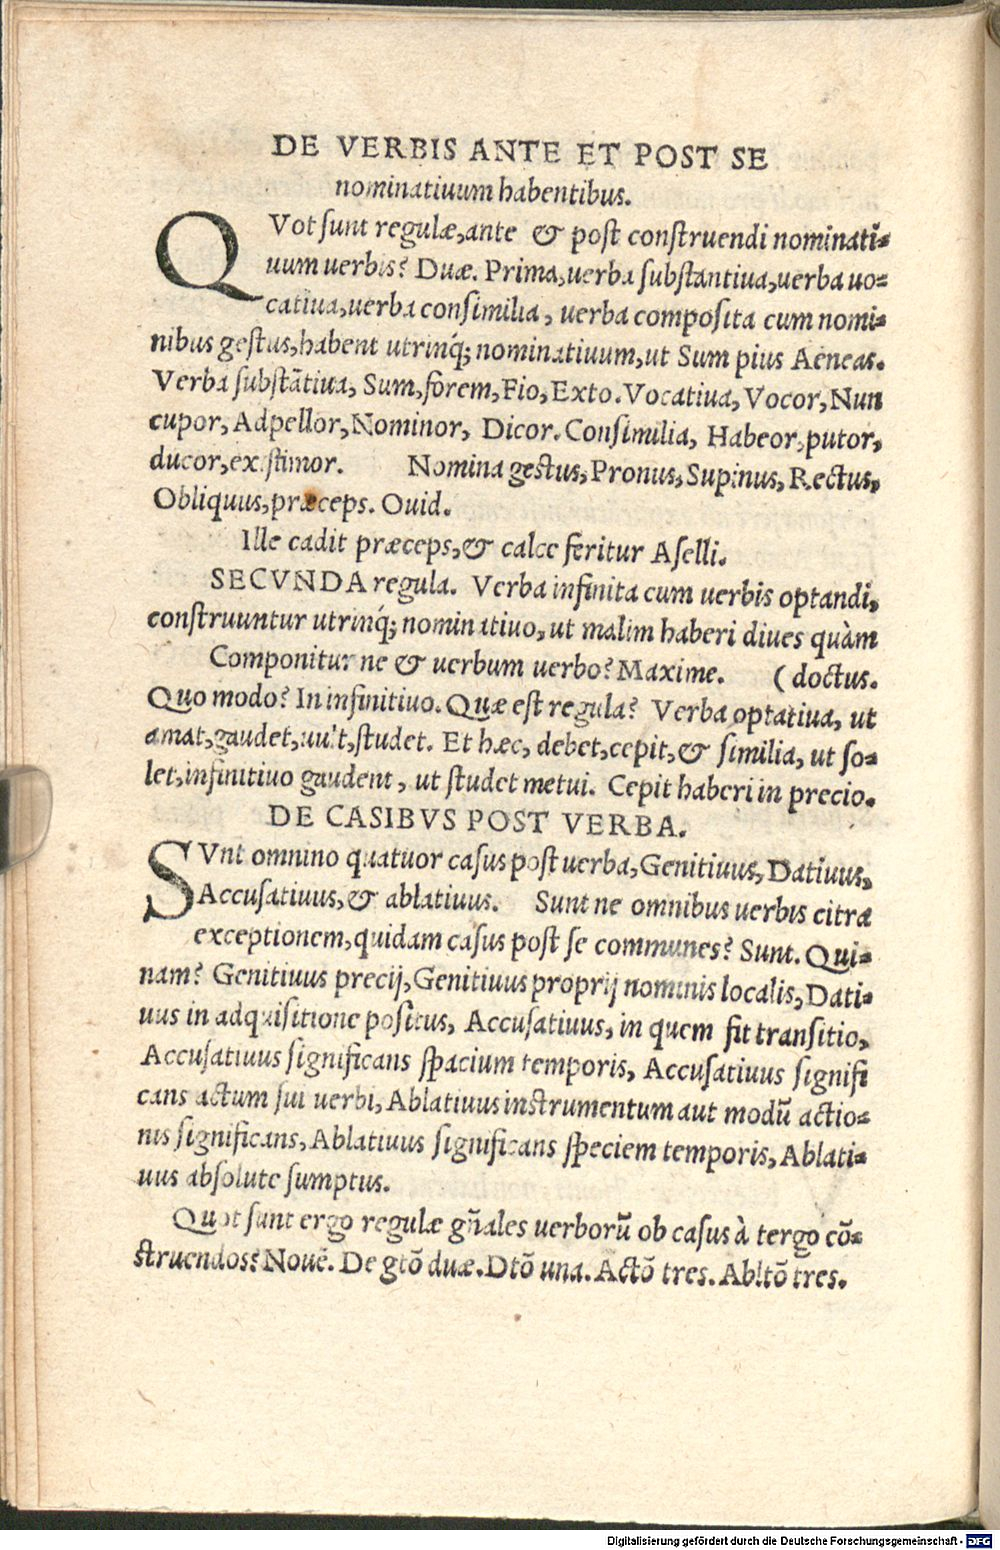 DE VERBIS ANTE ET POST SE
nominatiuum habentibus.
QVot sunt regulæ, ante & post construendi nominati-
uum uerbis? Duæ. Prima, uerba substantiua, uerba uo-
catiua, uerba consimilia, uerba composita cum nomi-
nibus gestus, habent utrinq; nominatiuum, ut Sum pius Aeneas.
Verba substātiua, Sum, forem, Fio, Exto. Vocatiua, Vocor, Nun
cupor, Adpellor, Nominor, Dicor. Consimilia, Habeor, putor,
ducor, existimor. Nomina gestus, Pronus, Supinus, Rectus,
Obliquus, præceps. Ouid.
Ille cadit præceps, & calce feritur Aselli.
SECVNDA regula. Verba infinita cum uerbis optandi,
construuntur utrinq; nominatiuo, ut malim haberi diues quàm
Componitur ne & uerbum uerbo? Maxime. (doctus.
Quo modo? In infinitiuo. Quæ est regula? Verba optatiua, ut
amat, gaudet, uult, studet. Et hæc, debet, cepit, & similia, ut so-
let, infinitiuo gaudent, ut studet metui. Cepit haberi in precio.
DE CASIBVS POST VERBA.
SVnt omnino quatuor casus post uerba, Genitiuus, Datiuus,
Accusatiuus, & ablatiuus. Sunt ne omnibus uerbis citra
exceptionem, quidam casus post se communes? Sunt. Qui-
nam? Genitiuus precij, Genitiuus proprij nominis localis, Dati-
uus in adquisitione positus, Accusatiuus, in quem fit transitio,
Accusatiuus significans spacium temporis, Accusatiuus signifi
cans actum sui uerbi, Ablatiuus instrumentum aut modū actio-
nis significans, Ablatiuus significans speciem temporis, Ablati-
uus absolute sumptus.
Quot sunt ergo regulæ gñales uerborū ob casus à tergo cō-
struendos? Nouē. De gtō duæ. Dtō una. Actō tres. Abltō tres.
Digitalisierung gefördert durch die Deutsche Forschungsgemeinschaft - DFG